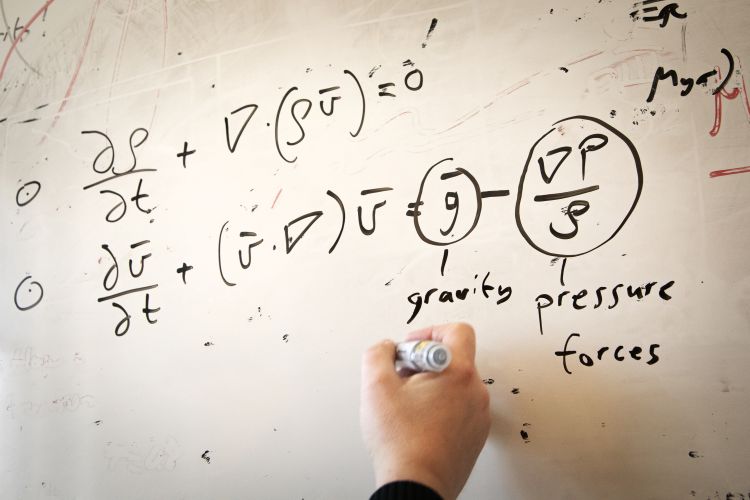 ∂ρ/∂t + ∇·(ρv̄) = 0
∂v̄/∂t + (v̄·∇)v̄ = ḡ - ∇P/ρ
gravity pressure
forces
Myr)